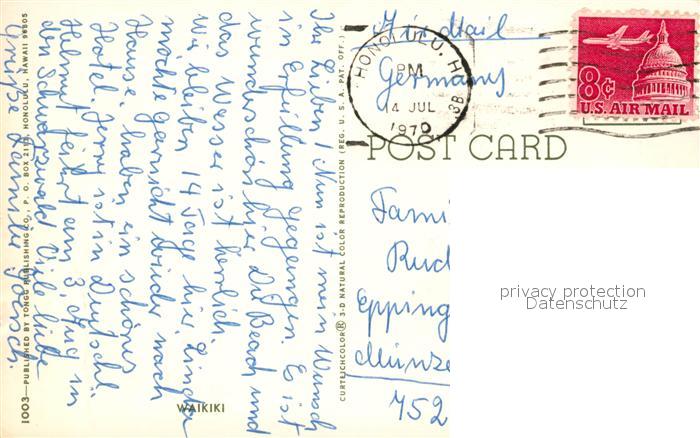 Ihr Lieben! Nun ist mein Wunsch
in Erfüllung gegangen. Es ist
wunderschön hier. Der Beach und
das Wasser ist herrlich.
Wir bleiben 14 Tage hier. Kinder
möchte gar nicht wieder nach
Hause. haben ein schönes
Hotel. Jerry ist in Deutschl.
Helmut feiert am 3. Aug in
den Schwarzwald Viele liebe
Grüße
1003—PUBLISHED BY TONGG PUBLISHING CO., P. O. BOX 2113, HONOLULU, HAWAII 96805
WAIKIKI
CURTEICHCOLOR® 3-D NATURAL COLOR REPRODUCTION (REG. U. S. A. PAT. OFF.)
Air Mail
Germany
HONOLULU, HI
PM
14 JUL
1970
8¢
U.S. AIR MAIL
POST CARD
Fami
Rud
Epping
Münze
752
privacy protection
Datenschutz